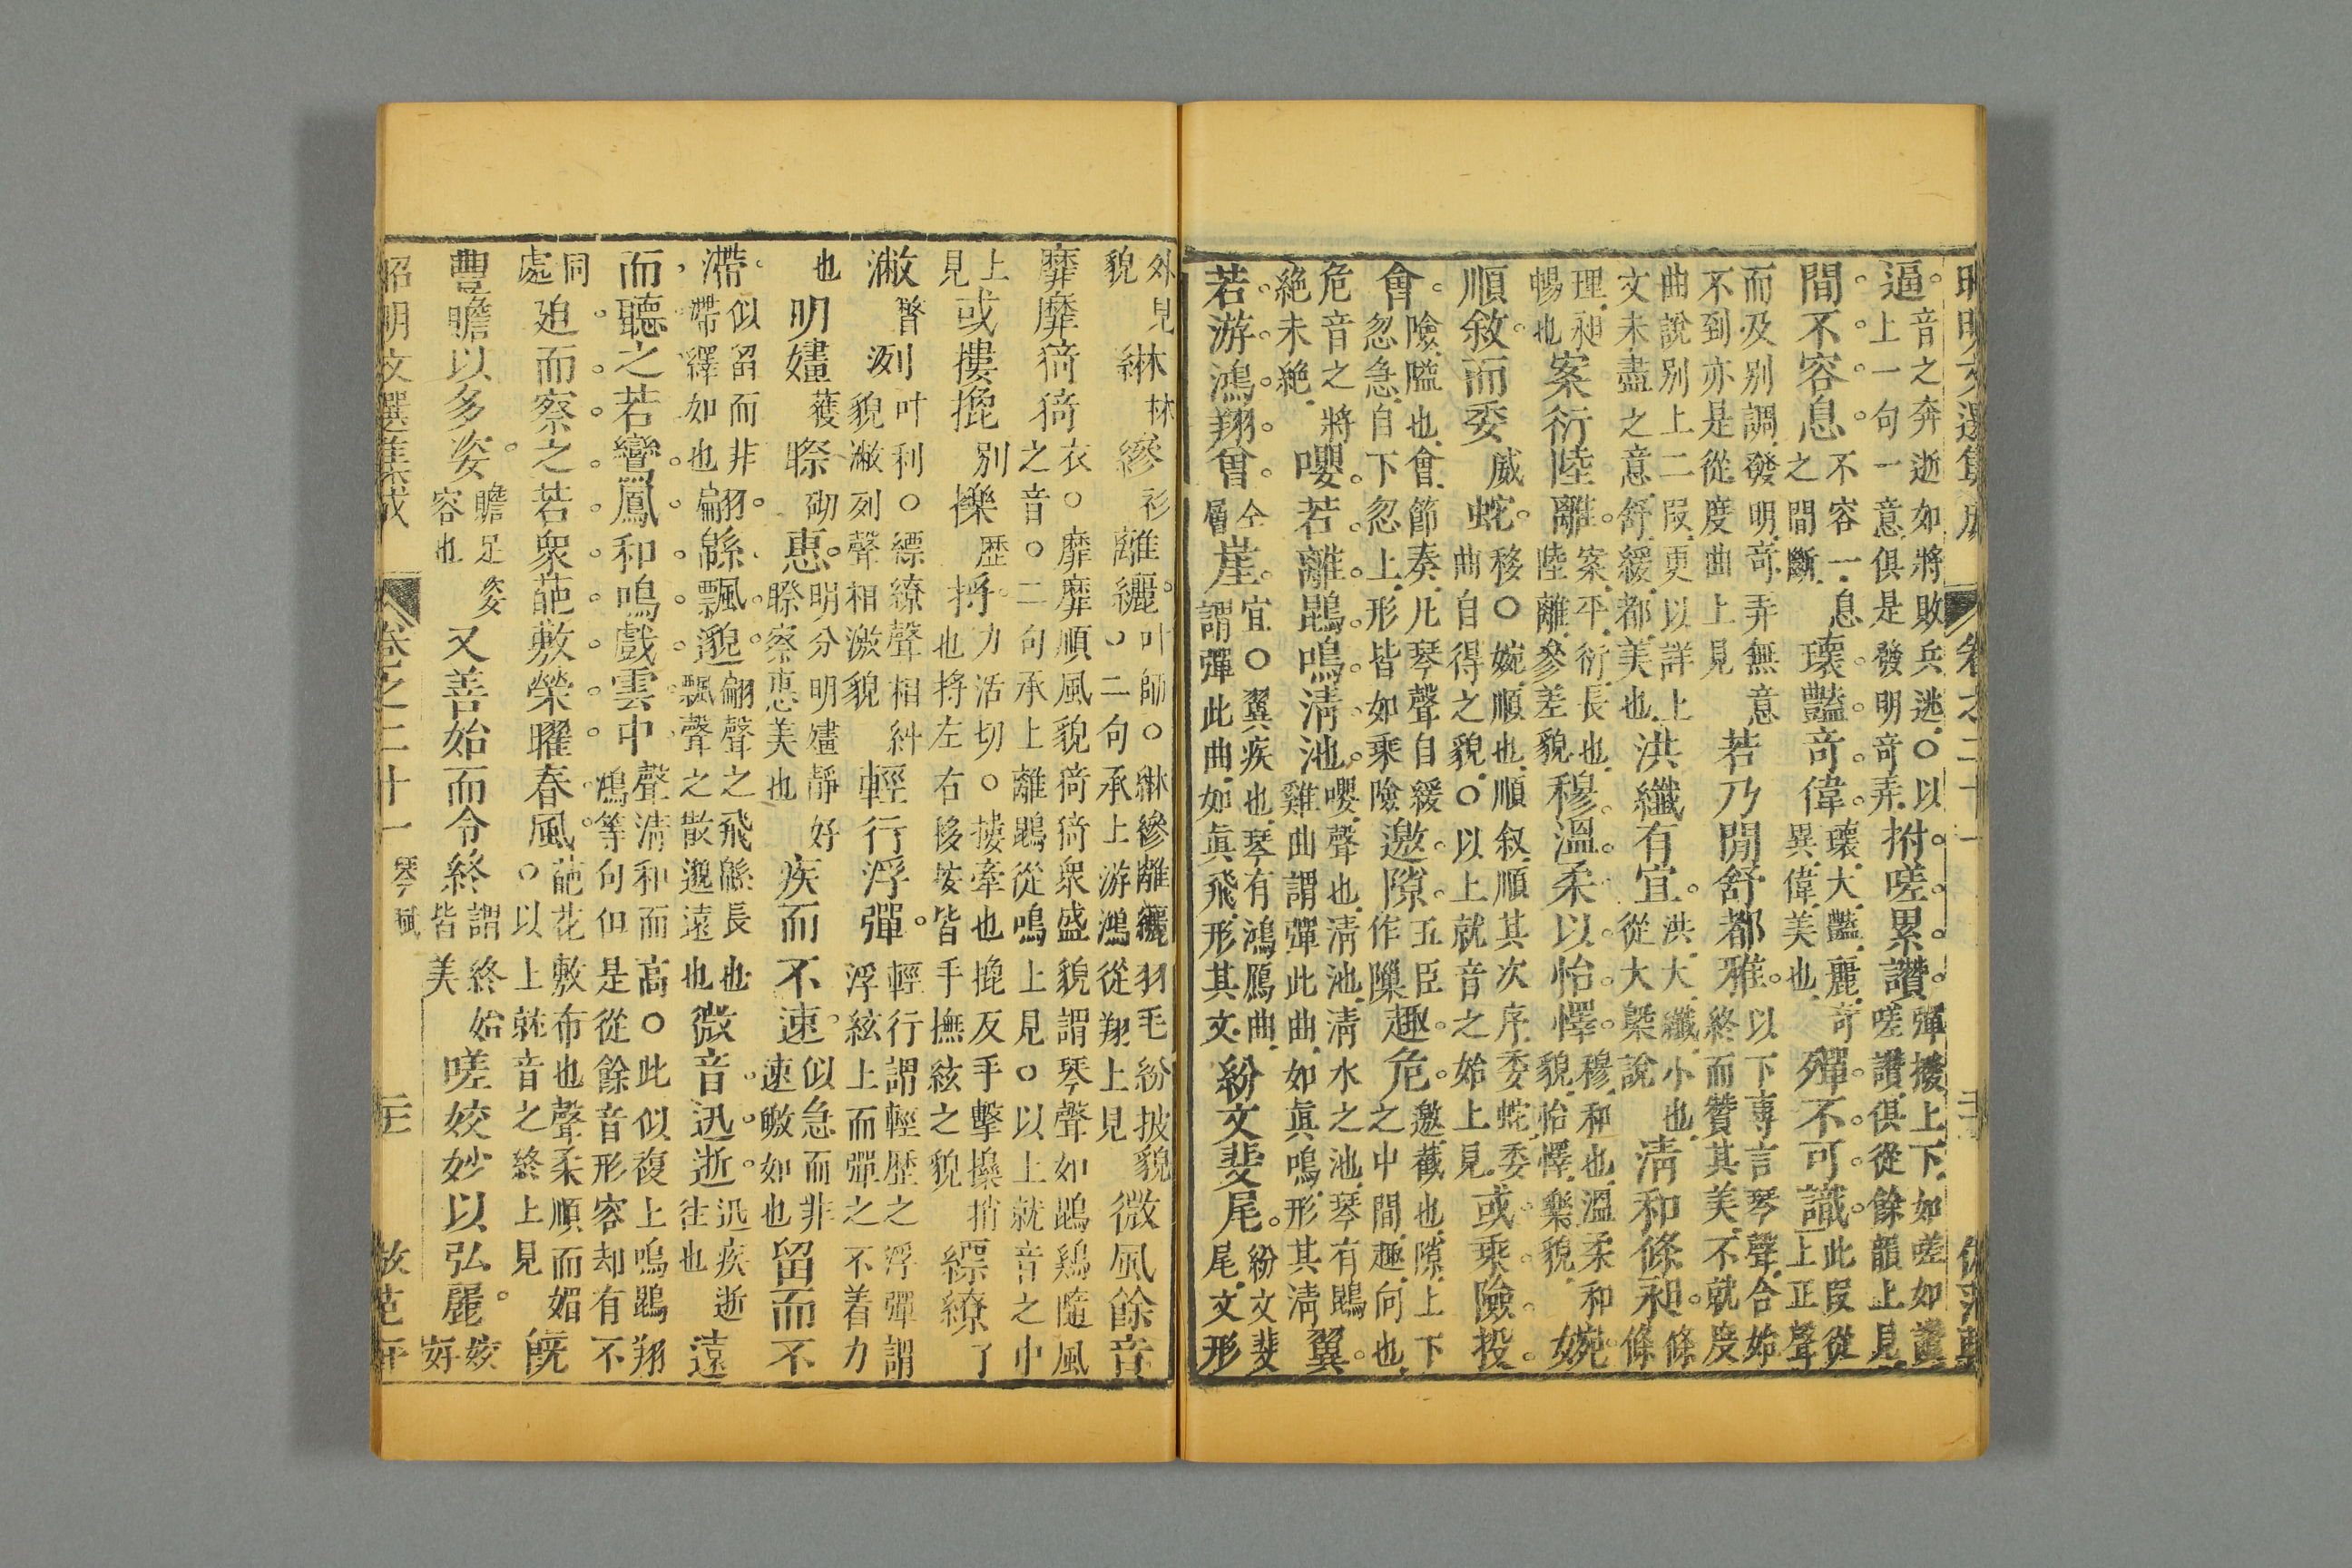 逼。音之奔逝如將敗兵逃○以上一句一意俱是發明奇弄拊嗟累讚。彈擾上下如嗟如讚嗟讚俱從餘韻上見
間不容息。不容一息之間斷瓌豔奇偉。瓌大豔麗奇異偉美也殫不可識。此段從上正聲
而及別調發明奇弄無意不到亦是從度曲上見若乃閒舒都雅。以下專言琴聲合始終而贊其美不就度
曲說別上二段更以詳上文未盡之意舒緩都美也洪纖有宜。洪大纖小也從大槩說清和條昶。條條
理昶暢也案衍陸離。案平衍長也陸離參差貌穆溫柔以怡懌。穆和也溫柔和貌怡懌樂貌婉
順敘而委威蛇。移○婉順也順叙順其次序委蛇委曲自得之貌○以上就音之始上見或乘險投
會。險隘也會節奏凡琴聲自緩忽急自下忽上形皆如乘險邀隙五臣作隟趨危。邀截也隙上下之中間趨向也
危音之將絶未絶嚶若離鵾鳴清池。嚶聲也清池清水之池琴有鵾雞曲謂彈此曲如眞鳴形其清翼
若游鴻翔曾仝層崖。宜○翼疾也琴有鴻鴈曲謂彈此曲如眞飛形其文紛文斐尾。紛文斐尾文形
外見貌綝林縿衫離纚。叶師○綝縿離纚羽毛紛披貌二句承上游鴻從翔上見微風餘音
靡靡猗猗衣○靡靡順風貌猗猗衆盛貌謂琴聲如鵾鷄隨風之音○二句承上離鵾從鳴上見○以上就音之中
上見或摟㧼別擽歴捋。力活切○摟牽也㧼反手擊擽捎也捋左右移按皆手撫絃之貌縹繚了
潎瞥洌叶利○縹繚聲相糾貌潎洌聲相激貌輕行浮彈。輕行謂輕歴之浮彈謂浮絃上而彈之不着力
也明嫿㬠砌惠。明分明嫿靜好㬠察惠美也疾而不速。似急而非速皦如也留而不
滯。似留而非滯繹如也翩緜飄邈。翩聲之飛緜長也飄聲之散邈遠也微音迅逝。迅疾逝往也遠
而聽之若鸞鳳和鳴戲雲中聲清和而高○此似復上鳴鵾翔鴻等句但是從餘音形容却有不
同處迫而察之若衆葩敷榮曜春風。葩花敷布也聲柔順而媚○以上就音之終上見既
豐贍以多姿。贍足姿容也又善始而令終謂終始皆美嗟姣妙以弘麗。姣好
昭明文選集成 卷之二十一 琴賦